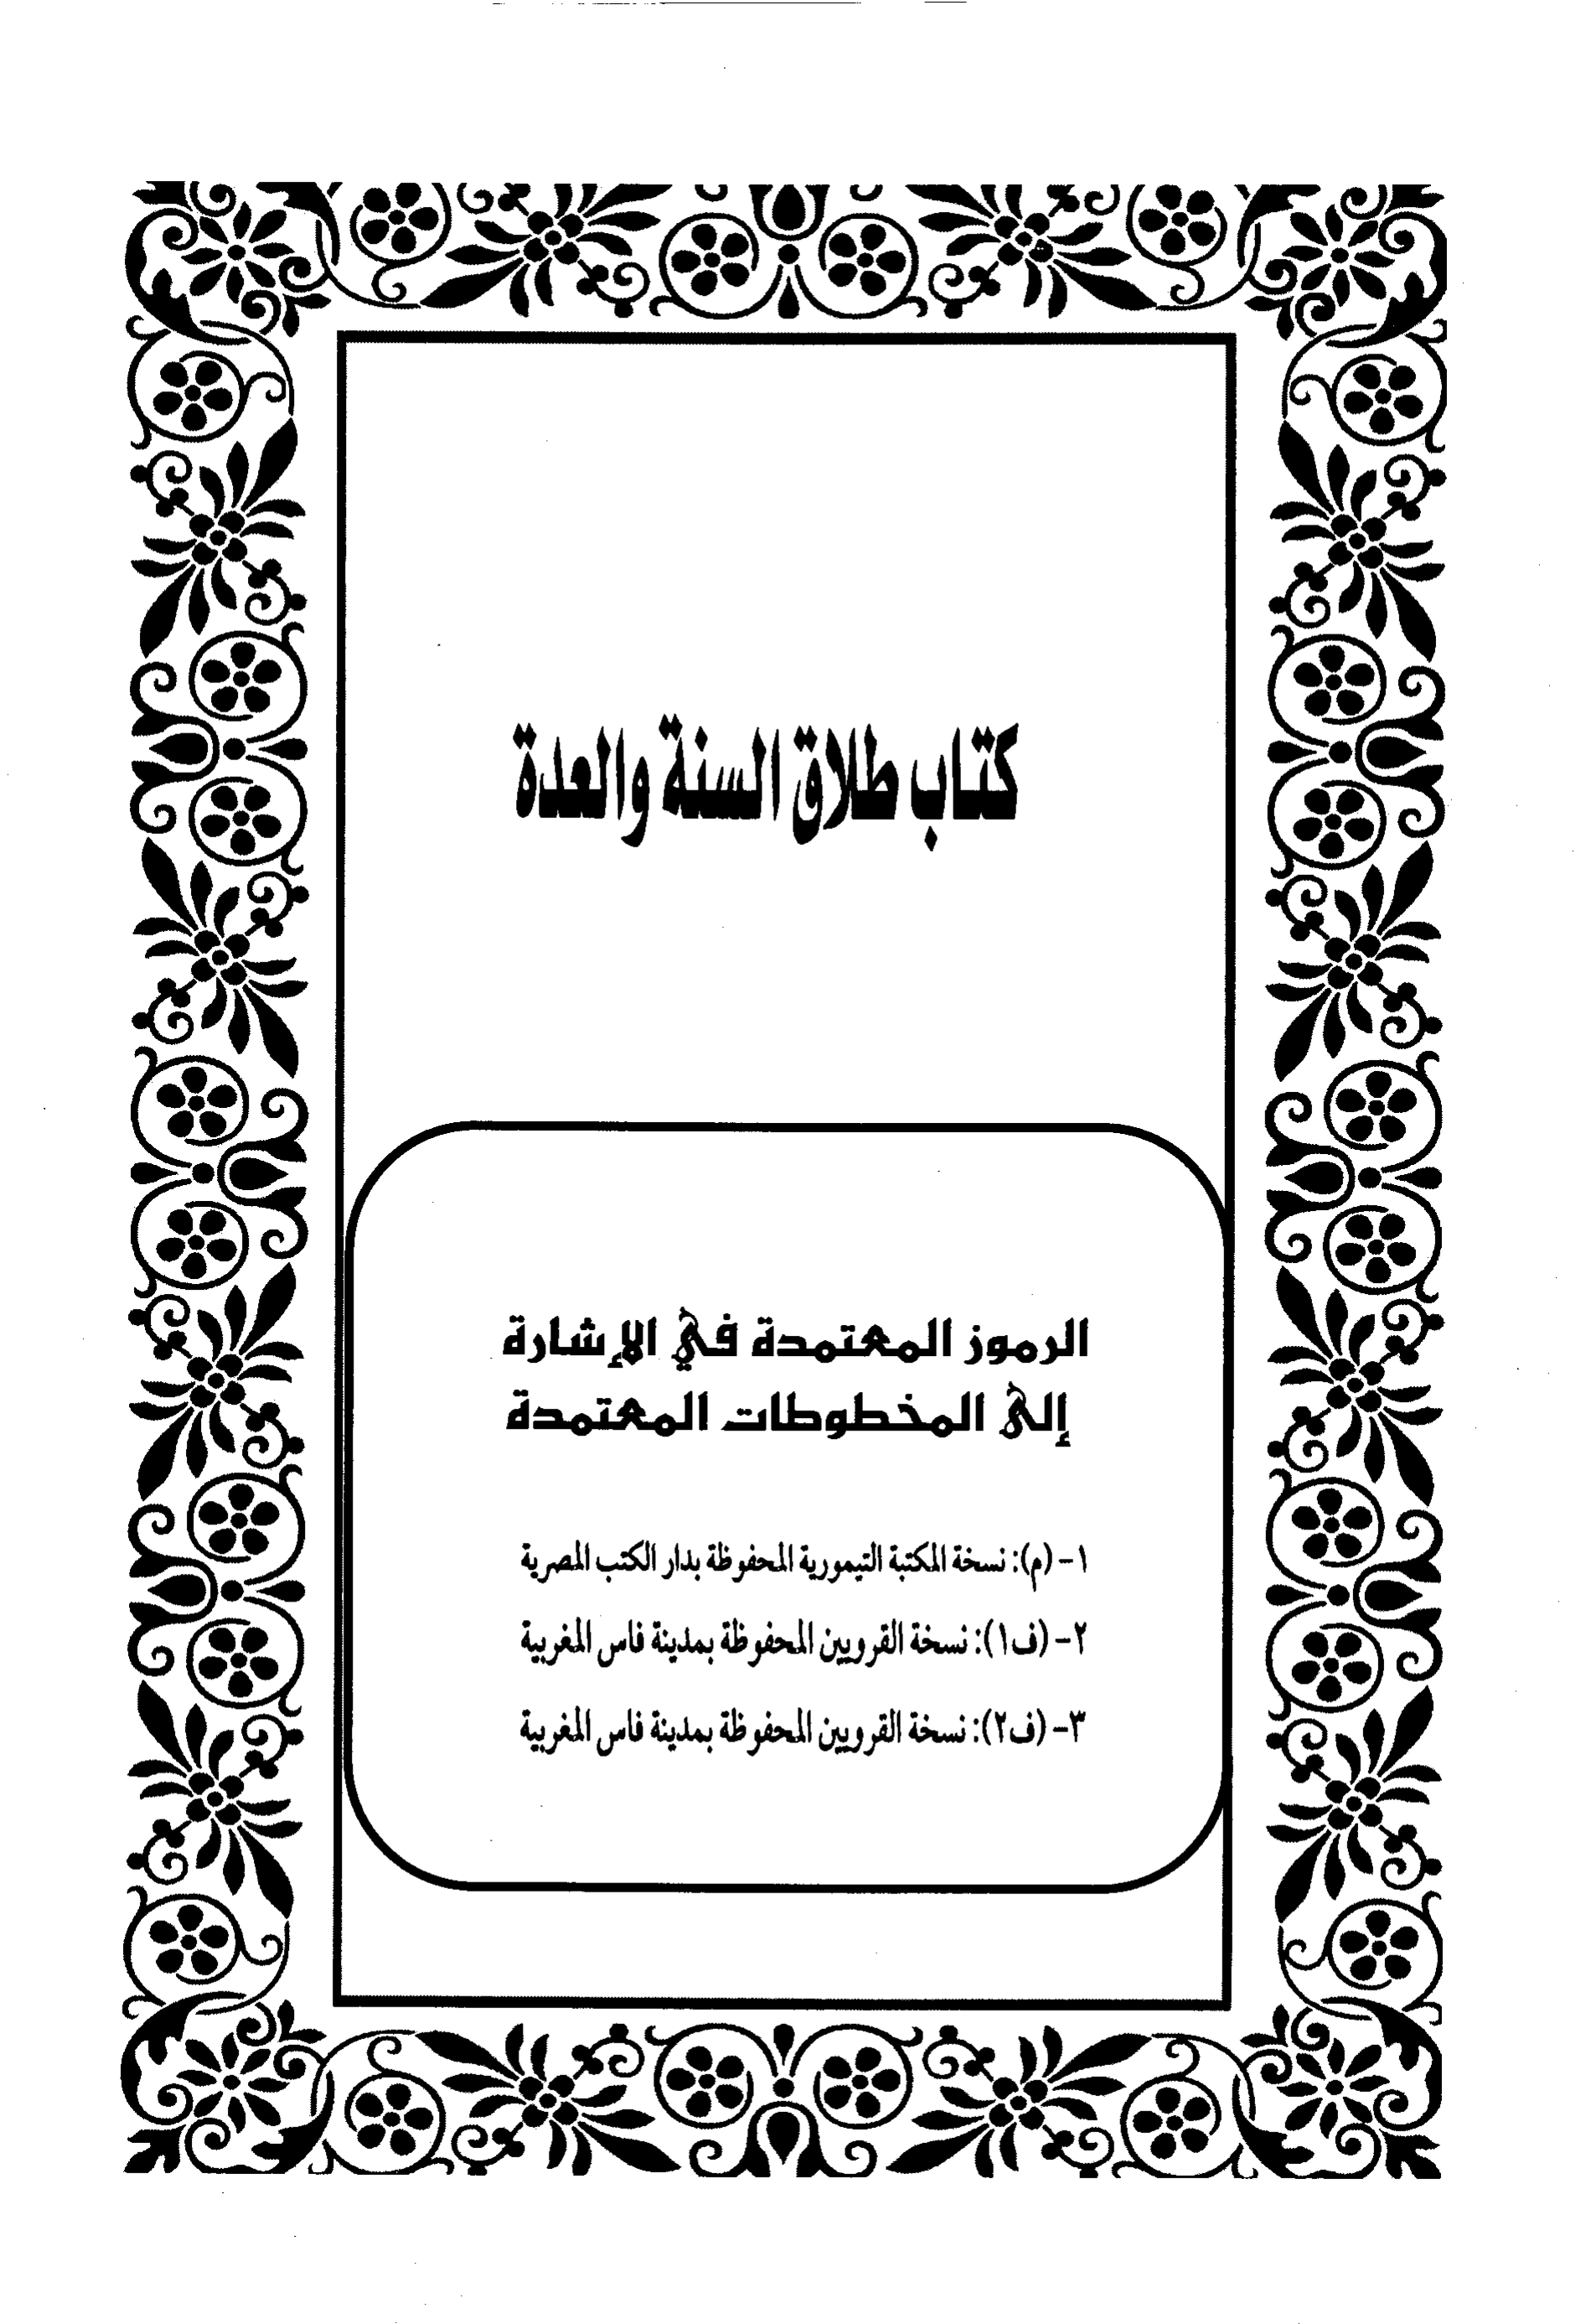 كتاب طلاق السنة والعدة
الرموز المعتمدة في الإشارة
إلى المخطوطات المعتمدة
١- (م): نسخة المكتبة التيمورية المحفوظة بدار الكتب المصرية
٢- (ف١): نسخة القرويين المحفوظة بمدينة فاس المغربية
٣- (ف٢): نسخة القرويين المحفوظة بمدينة فاس المغربية